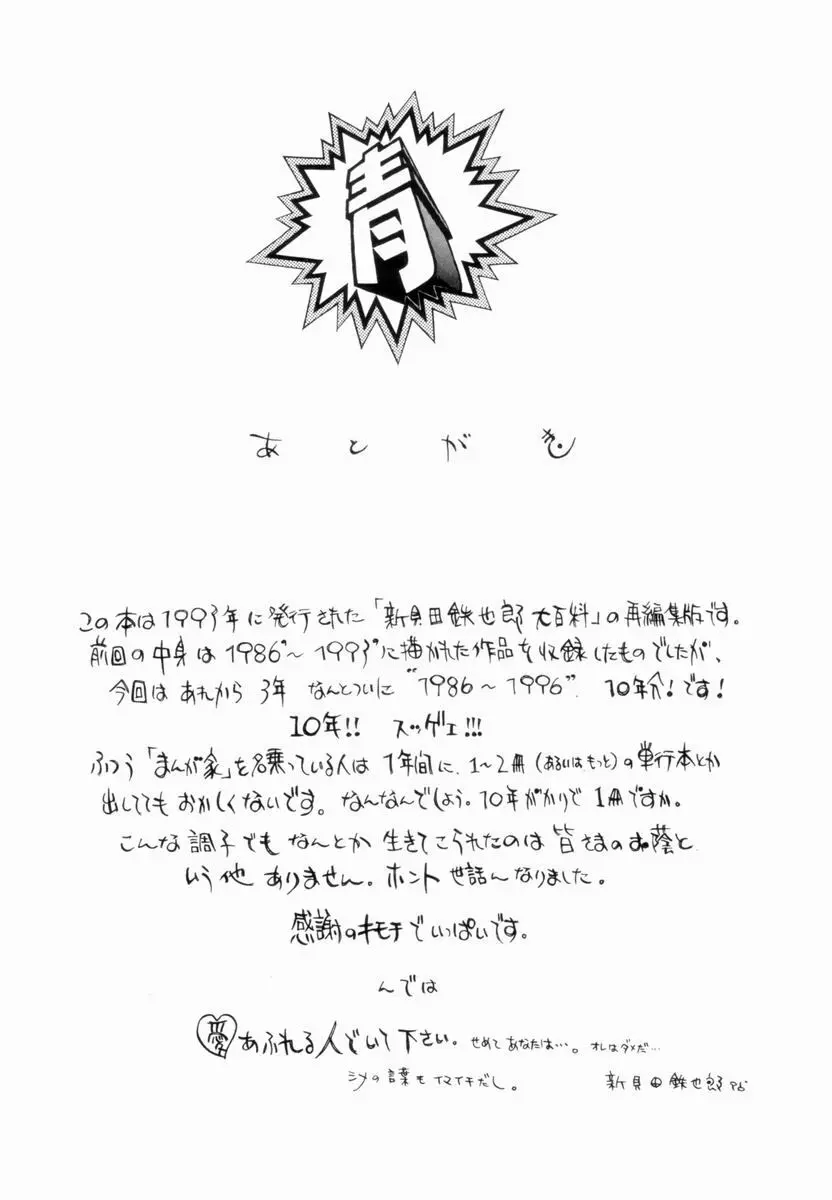 青
あとがき
この本は1993年に発行された「新貝田鉄也郎大百科」の再編集版です。
前回の中身は1986~1993に描かれた作品を収録したものでしたが、
今回はあれから3年なんとついに"1986~1996" 10年分!です!
10年!! スッゲエ!!!
ふつう「まんが家」を名乗っている人は1年間に、1~2冊(あるいはもっと)の単行本とか
出しててもおかしくないです。なんなんでしょう。10年がかりで1冊ですか。
こんな調子でもなんとか生きてこられたのは皆さまのお蔭と
いう他ありません。ホント世話んなりました。
感謝のキモチでいっぱいです。
んでは
愛あふれる人でいて下さい。せめてあなたは…。オレはダメだ…
シメの言葉もイマイチだし。 新貝田鉄也郎